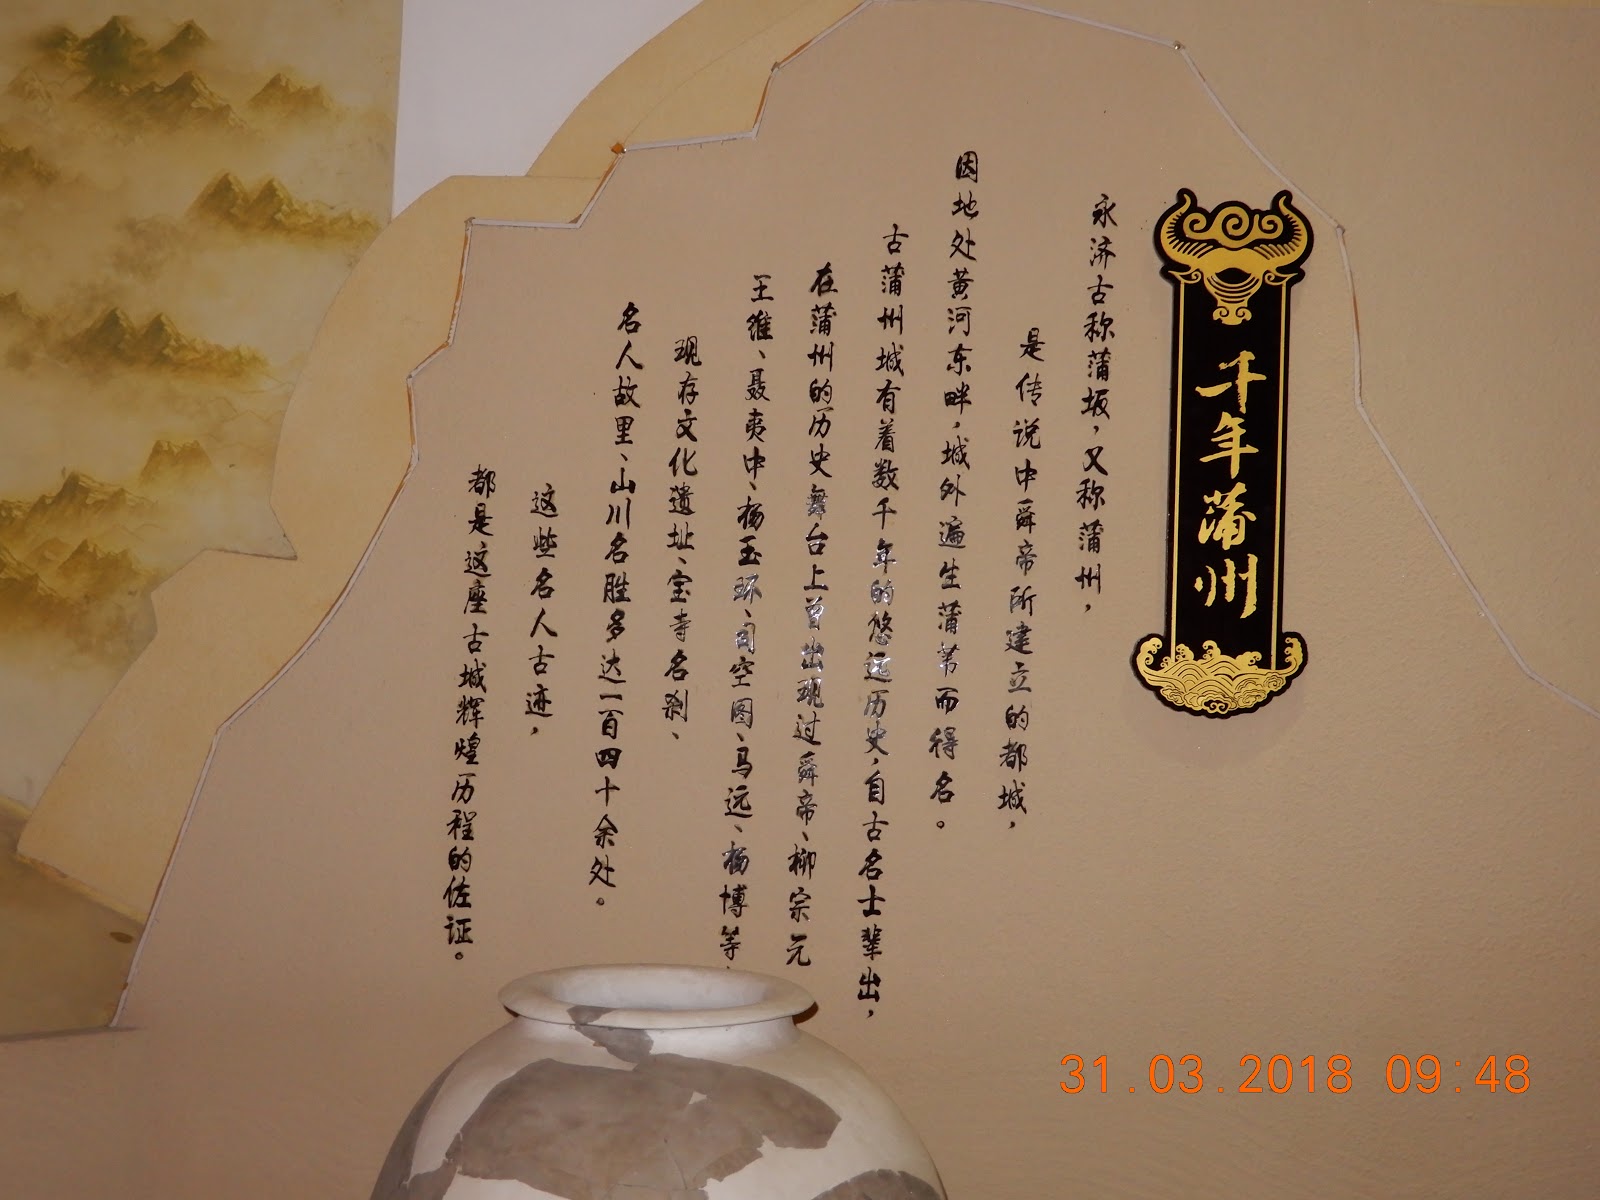 千年蒲州
永济古称蒲坂，又称蒲州，
是传说中舜帝所建立的都城，
因地处黄河东畔，城外遍生蒲苇而得名。
古蒲州城有着数千年的悠远历史，自古名士辈出，
在蒲州的历史舞台上曾出现过舜帝、柳宗元
王维、聂夷中、杨玉环、司空图、马远、杨博等
现存文化遗址、宝寺名刹、
名人故里、山川名胜多达一百四十余处。
这些名人古迹，
都是这座古城辉煌历程的佐证。
31.03.2018 09:48